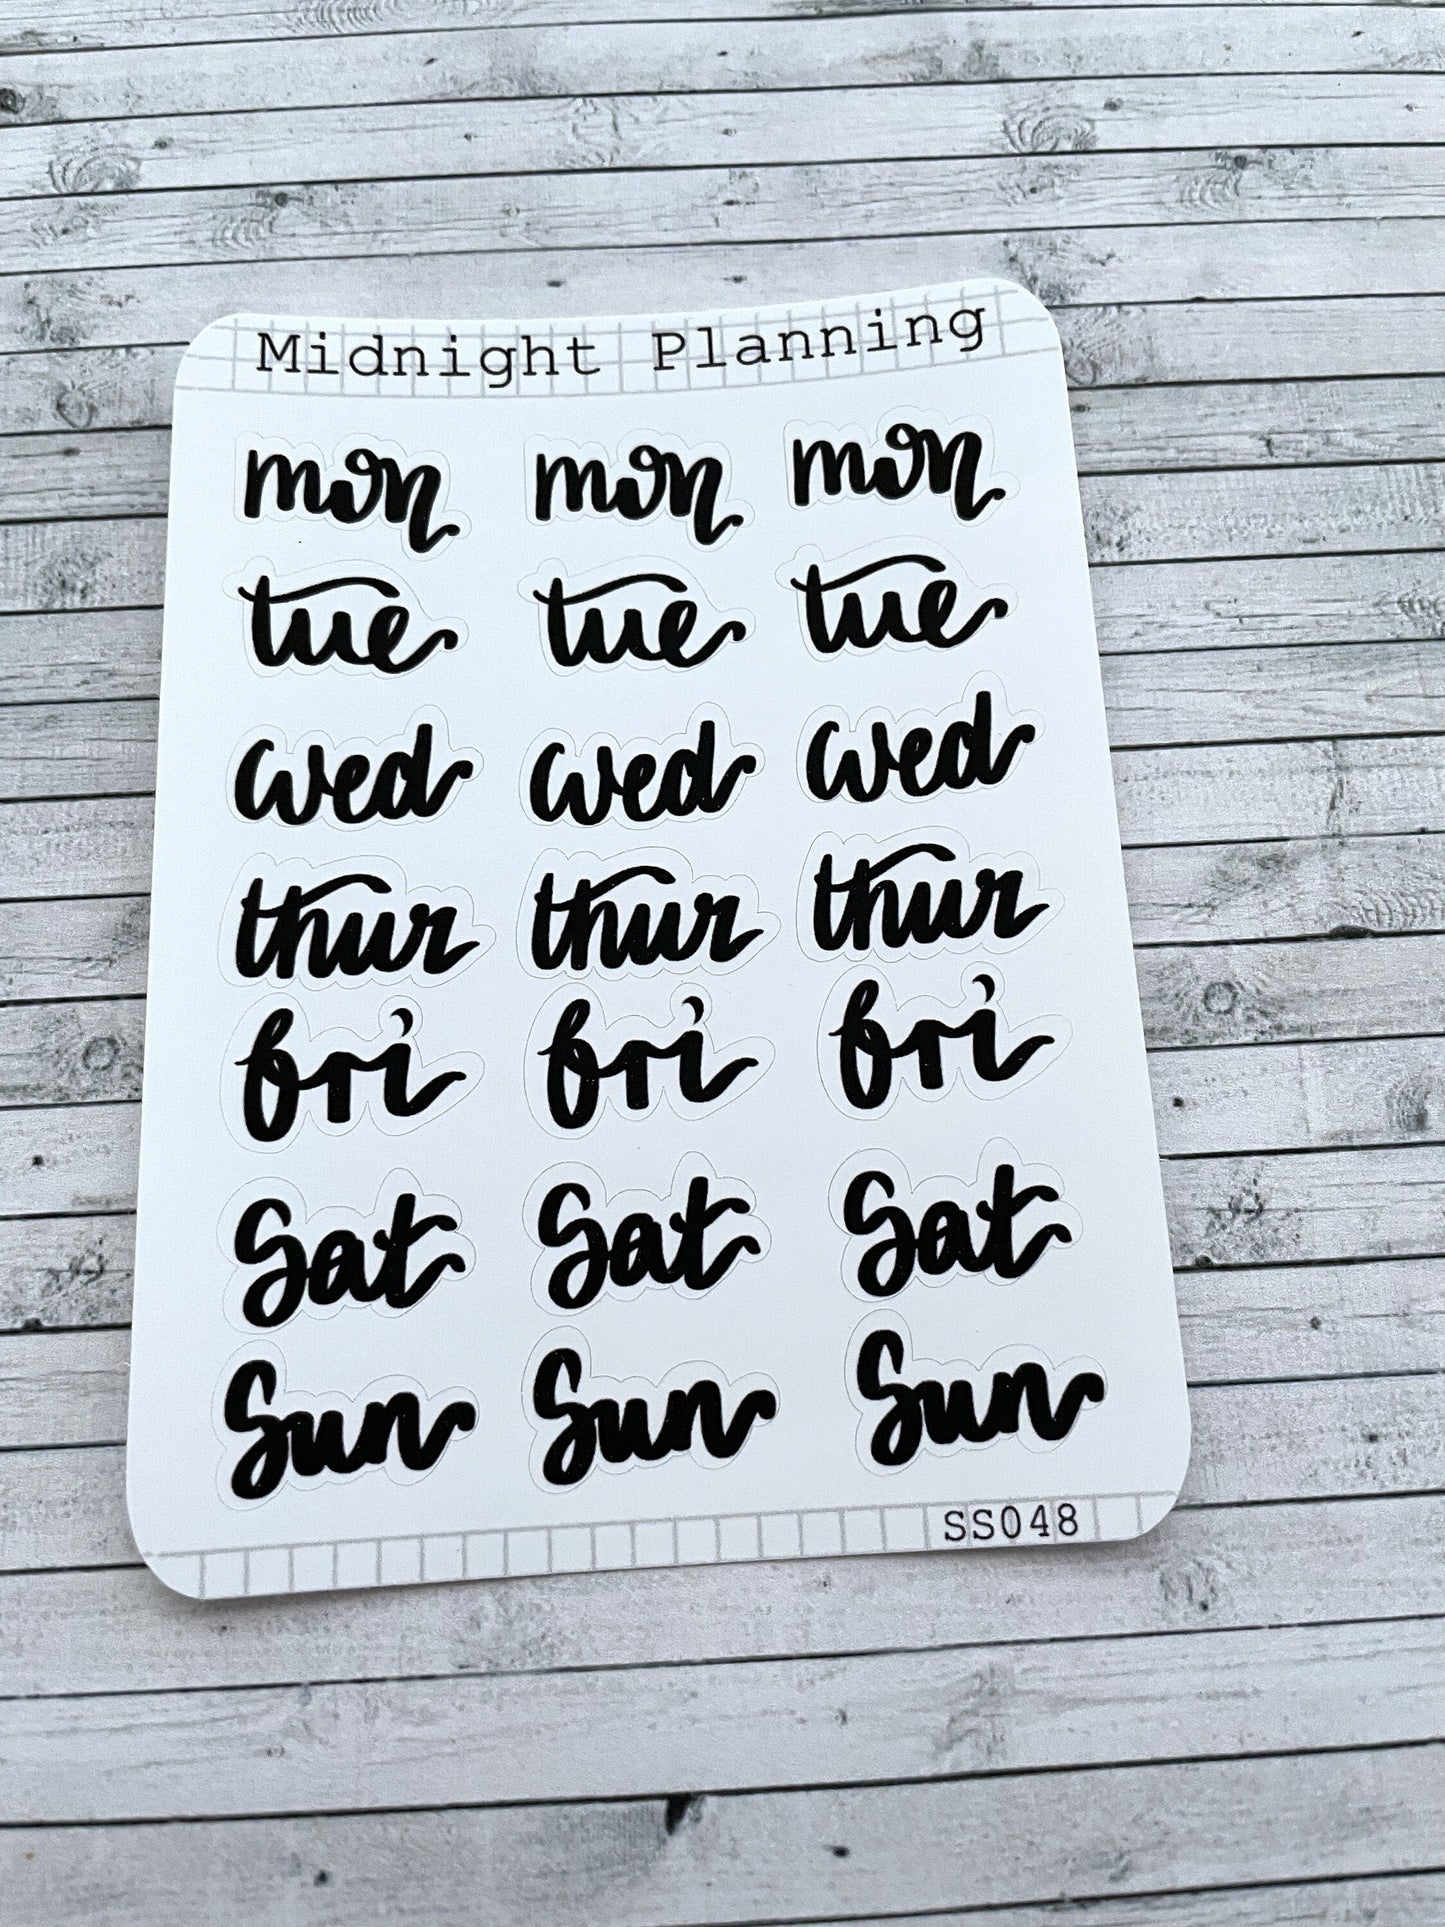 Midnight Planning
mon mon mon
tue tue tue
wed wed wed
thur thur thur
fri fri fri
Sat Sat Sat
Sun Sun Sun
SS048